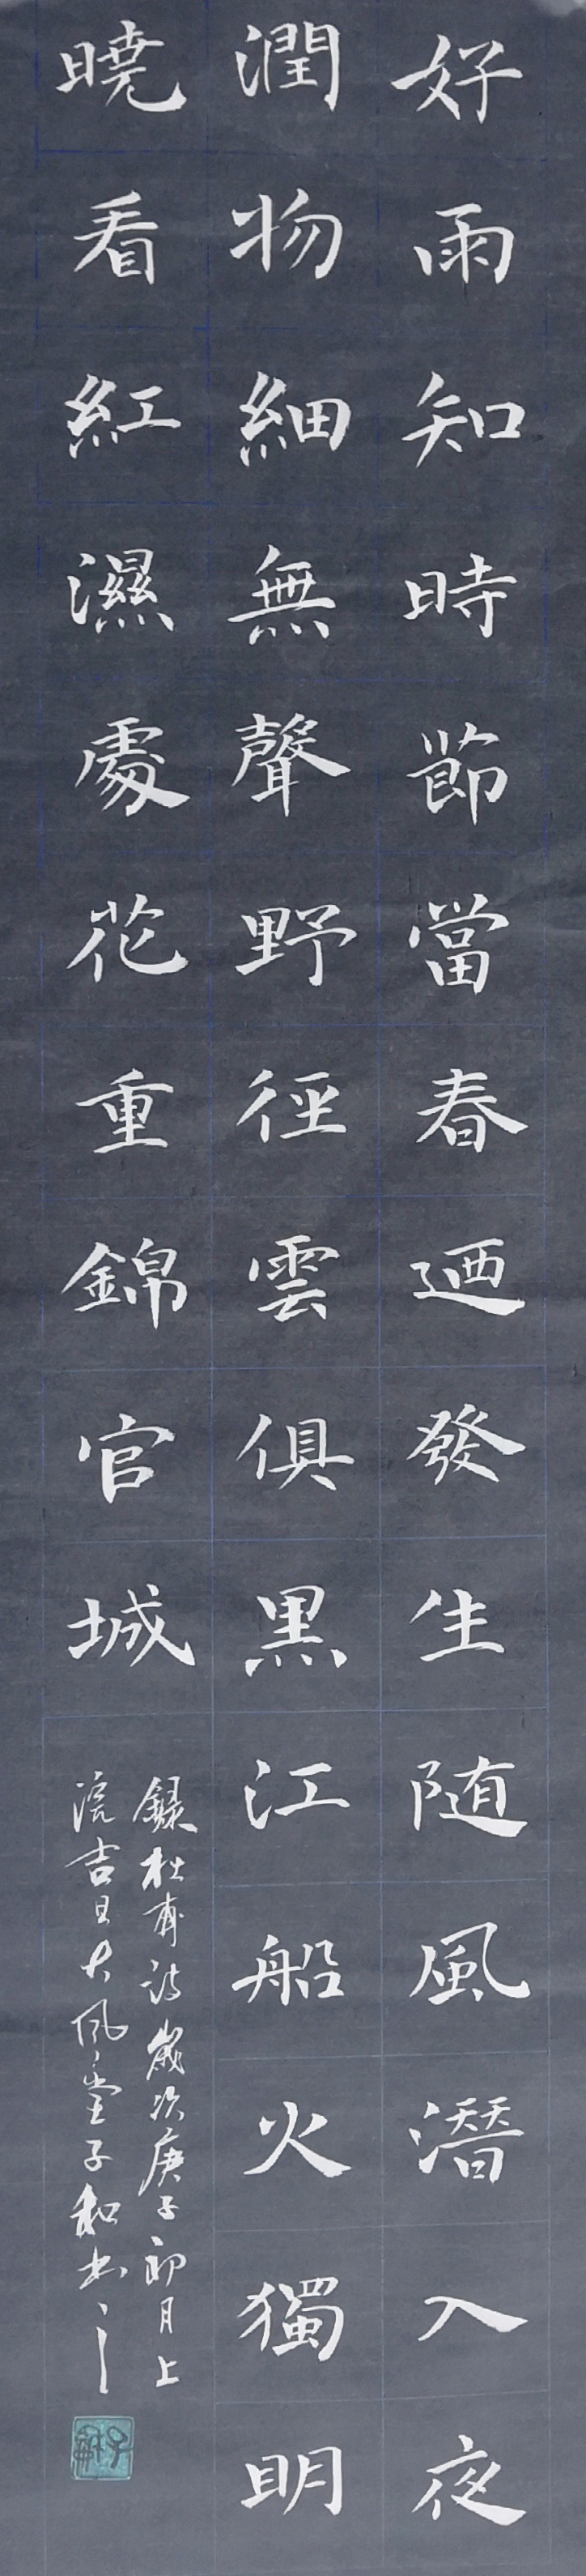 好雨知時節當春迺發生随風潛入夜
潤物細無聲野徑雲俱黑江船火獨明
曉看紅濕處花重錦官城
錄杜甫詩歲次庚子卯月上
浣吉旦大風堂子和书之